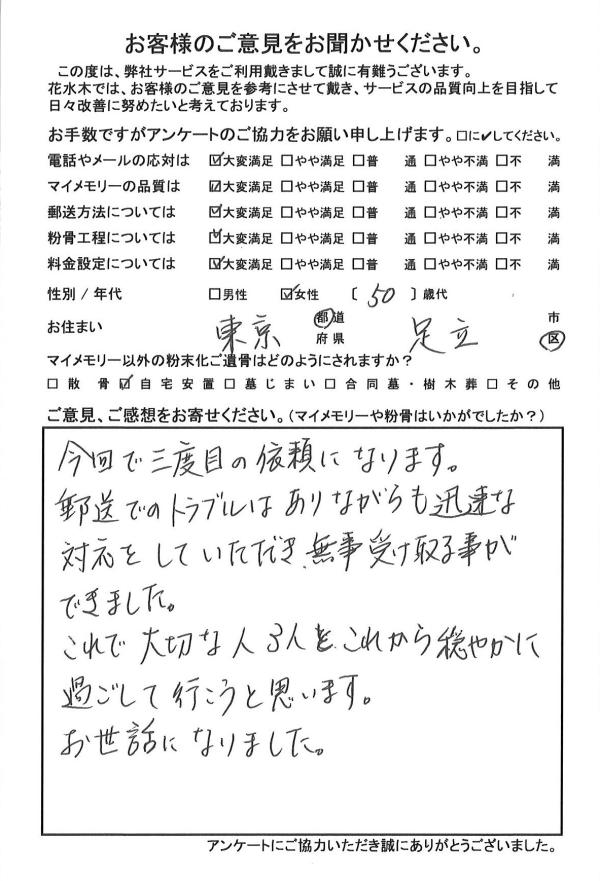 お客様のご意見をお聞かせください。
この度は、弊社サービスをご利用戴きまして誠に有難うございます。
花水木では、お客様のご意見を参考にさせて戴き、サービスの品質向上を目指して
日々改善に努めたいと考えております。
お手数ですがアンケートのご協力をお願い申し上げます。□に✔してください。
電話やメールの応対は ☑大変満足 □やや満足 □普 通 □やや不満 □不 満
マイメモリーの品質は ☑大変満足 □やや満足 □普 通 □やや不満 □不 満
郵送方法については ☑大変満足 □やや満足 □普 通 □やや不満 □不 満
粉骨工程については ☑大変満足 □やや満足 □普 通 □やや不満 □不 満
料金設定については ☑大変満足 □やや満足 □普 通 □やや不満 □不 満
性別 / 年代 □男性 ☑女性 〔 50 〕歳代
お住まい 東京 都道府県 足立 市区
マイメモリー以外の粉末化ご遺骨はどのようにされますか？
□散 骨 ☑自宅安置 □墓じまい □合同墓・樹木葬 □その他
ご意見、ご感想をお寄せください。（マイメモリーや粉骨はいかがでしたか？）
今回で三度目の依頼になります。
郵送でのトラブルはありながらも迅速な
対応をしていただき、無事受け取る事が
できました。
これで大切な人3人と、これから穏やかに
過ごして行こうと思います。
お世話になりました。
アンケートにご協力いただき誠にありがとうございました。